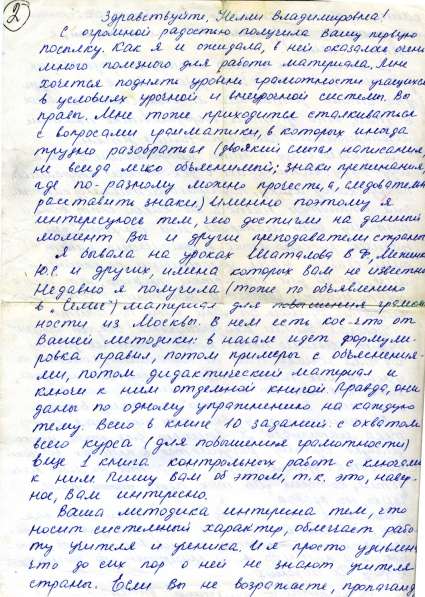 2
Здравствуйте, Нелли Владимировна!
С огромной радостью получила Вашу первую
посылку. Как я и ожидала, в ней оказалось очень
много полезного для работы материала. Мне
хочется поднять уровень грамотности учащихся
в условиях урочной и внеурочной системы. Вы
правы. Мне тоже приходится сталкиваться
с вопросами грамматики, в которых иногда
трудно разобраться (двоякий смысл написания,
не всегда легко объяснимый; знаки препинания,
где по-разному можно прочесть, а, следовательн
расставить знаки) Именно поэтому я
интересуюсь тем, чего достигли на данный
момент Вы и другие преподаватели страны
Я бывала на уроках Шаталова В.Ф.,
Ю.С и других, имена которых вам не известны
Недавно я получила (тоже по объявлению
в „Семье") материал для повышения грамот
ности из Москвы. В нём есть кое-что от
Вашей методики: в начале идёт формули-
ровка правил, потом примеры с объяснения-
ми, потом дидактический материал и
ключи к ним отдельной книгой. Правда, они
даны по одному упражнению на каждую
тему. Всего в книге 10 заданий с охватом
всего курса (для повышения грамотности)
и ещё 1 книга контрольных работ с ключами
к ним Пишу Вам об этом, т.к. это, навер-
ное, Вам интересно.
Ваша методика интересна тем, что
носит системный характер, облегчает рабо-
ту учителя и ученика. И я просто удивлен
что до сих пор о ней не знают учителя
страны. Если Вы не возражаете, пропаганд